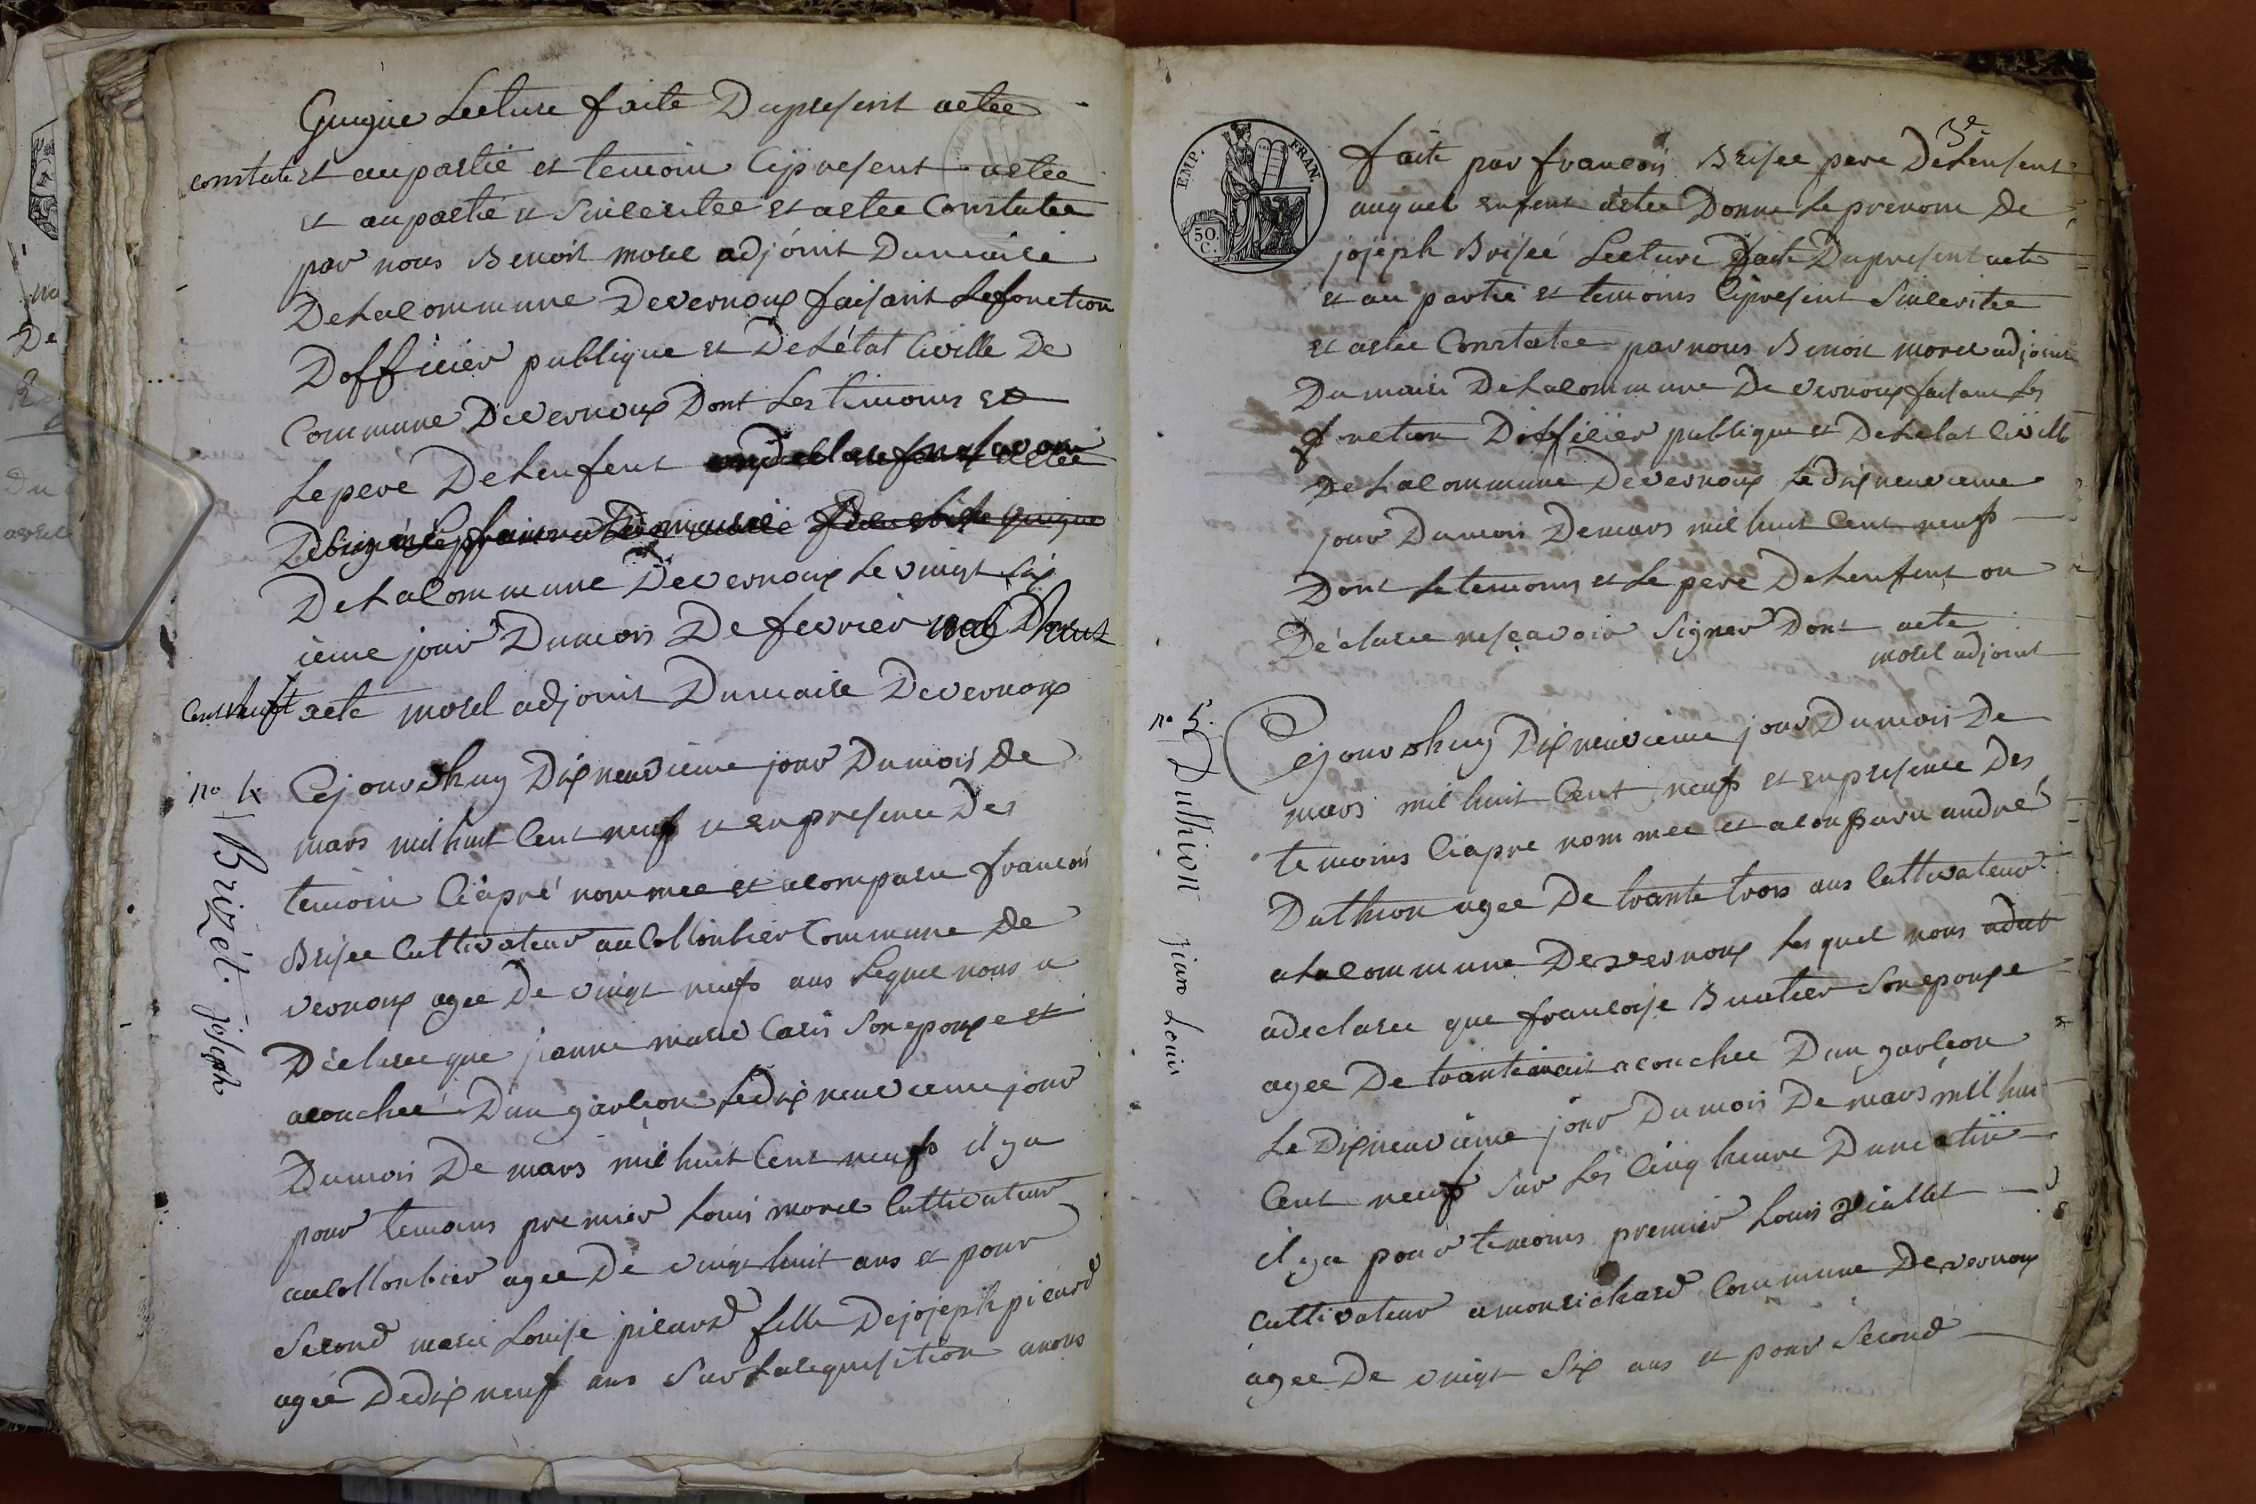 Guigue Lecture faite Dupresent actee
constate et aupartie et temoin Cÿpresent actee
et aupartie et Sinceritee et actee Constatee
par nous Benoit morel adjoint Dumaire
DeLacommune Devernoux faisant Lefonction
Dofficier publique et DeLétat Civille De
Commune Devernoux Dont Les temoins et
Lepere DeLenfent
DeLaCommune Devernoux Le vingt six
ieme jour Dumois De fevrier
Cent neuf acte morel adjoint Dumaire Devernoux
no 4
Brizet joseph
Cejourdhuy Dixneuvieme jour Dumois De
mars mil huit Cent neuf et enpresence Des
temoin Ciaprè nommee et acomparu francois
Brisee Cultivateur auCollonbier Commune De
vernoux agee De vingt neufs ans Lequel nous a
Déclaree que jeanne marie Caris Son epouxe et
acouchee Dun garçon Ledixneuvieme jour
Dumois De mars mil huit Cent neufs il ya
pour temoins premier Louis morel Cultivateur
auCollonbier agee De vingt huit ans et pour
Second marie Louise picard fille Dejoseph picard
agée Dedixneuf ans Sur Larequisition anous
EMP. FRAN.
50. C.
3e
faite par francois Brisee pere DeLenfent
auquel enfent actee Donne Leprenom De
joseph Briseé Lecture faite Dupresent acte
et au partie et temoins Cipresent Sinceritee
et actee Constatee par nous Benoit morel adjoint
Du maire DeLacommune De vernoux faisant Les
fonction Dofficier publique et DeLetat Civille
DeLaCommune Devernoux Ledixneuvieme
jour Dumois Demars mil huit Cent neufs
Dont Letemoins et Le pere DeLenfent on
Déclaree nesçavoir Signer Dont acte
morel adjoint
no 5.
Duthion jean Louis
Cejourdhuy Dixneuvieme jour Dumois De
mars mil huit Cent neufs et enpresence Des
temoins Ciapre nommee et acomparu andré
Duthion agee De trante trois ans Cultivateur
aLacommune Devernoux Lesquel nous
adeclaree que francoise Buatier Son epouxe
agee De acouchee Dun garçon
Le Dixneuvieme jour Dumois De mars mil huit
Cent neuf Sur Les Cinq heure Dumatin
il ya pour temoins premier Louis viallet
Cultivateur amonrichard Commune Devernoux
agee De vingt Six ans et pour Second